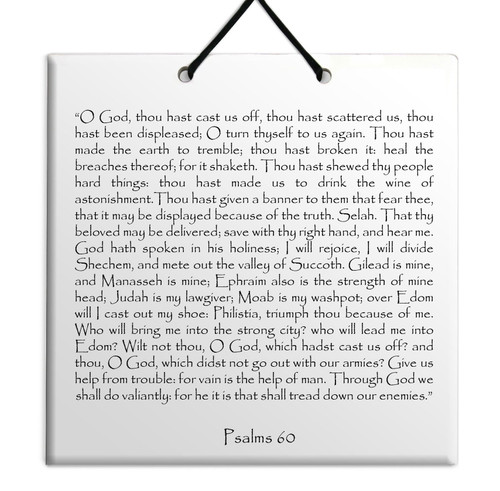 “O God, thou hast cast us off, thou hast scattered us, thou
hast been displeased; O turn thyself to us again. Thou hast
made the earth to tremble; thou hast broken it: heal the
breaches thereof; for it shaketh. Thou hast shewed thy people
hard things: thou hast made us to drink the wine of
astonishment.Thou hast given a banner to them that fear thee,
that it may be displayed because of the truth. Selah. That thy
beloved may be delivered; save with thy right hand, and hear me.
God hath spoken in his holiness; I will rejoice, I will divide
Shechem, and mete out the valley of Succoth. Gilead is mine,
and Manasseh is mine; Ephraim also is the strength of mine
head; Judah is my lawgiver; Moab is my washpot; over Edom
will I cast out my shoe: Philistia, triumph thou because of me.
Who will bring me into the strong city? who will lead me into
Edom? Wilt not thou, O God, which hadst cast us off? and
thou, O God, which didst not go out with our armies? Give us
help from trouble: for vain is the help of man. Through God we
shall do valiantly: for he it is that shall tread down our enemies.”
Psalms 60